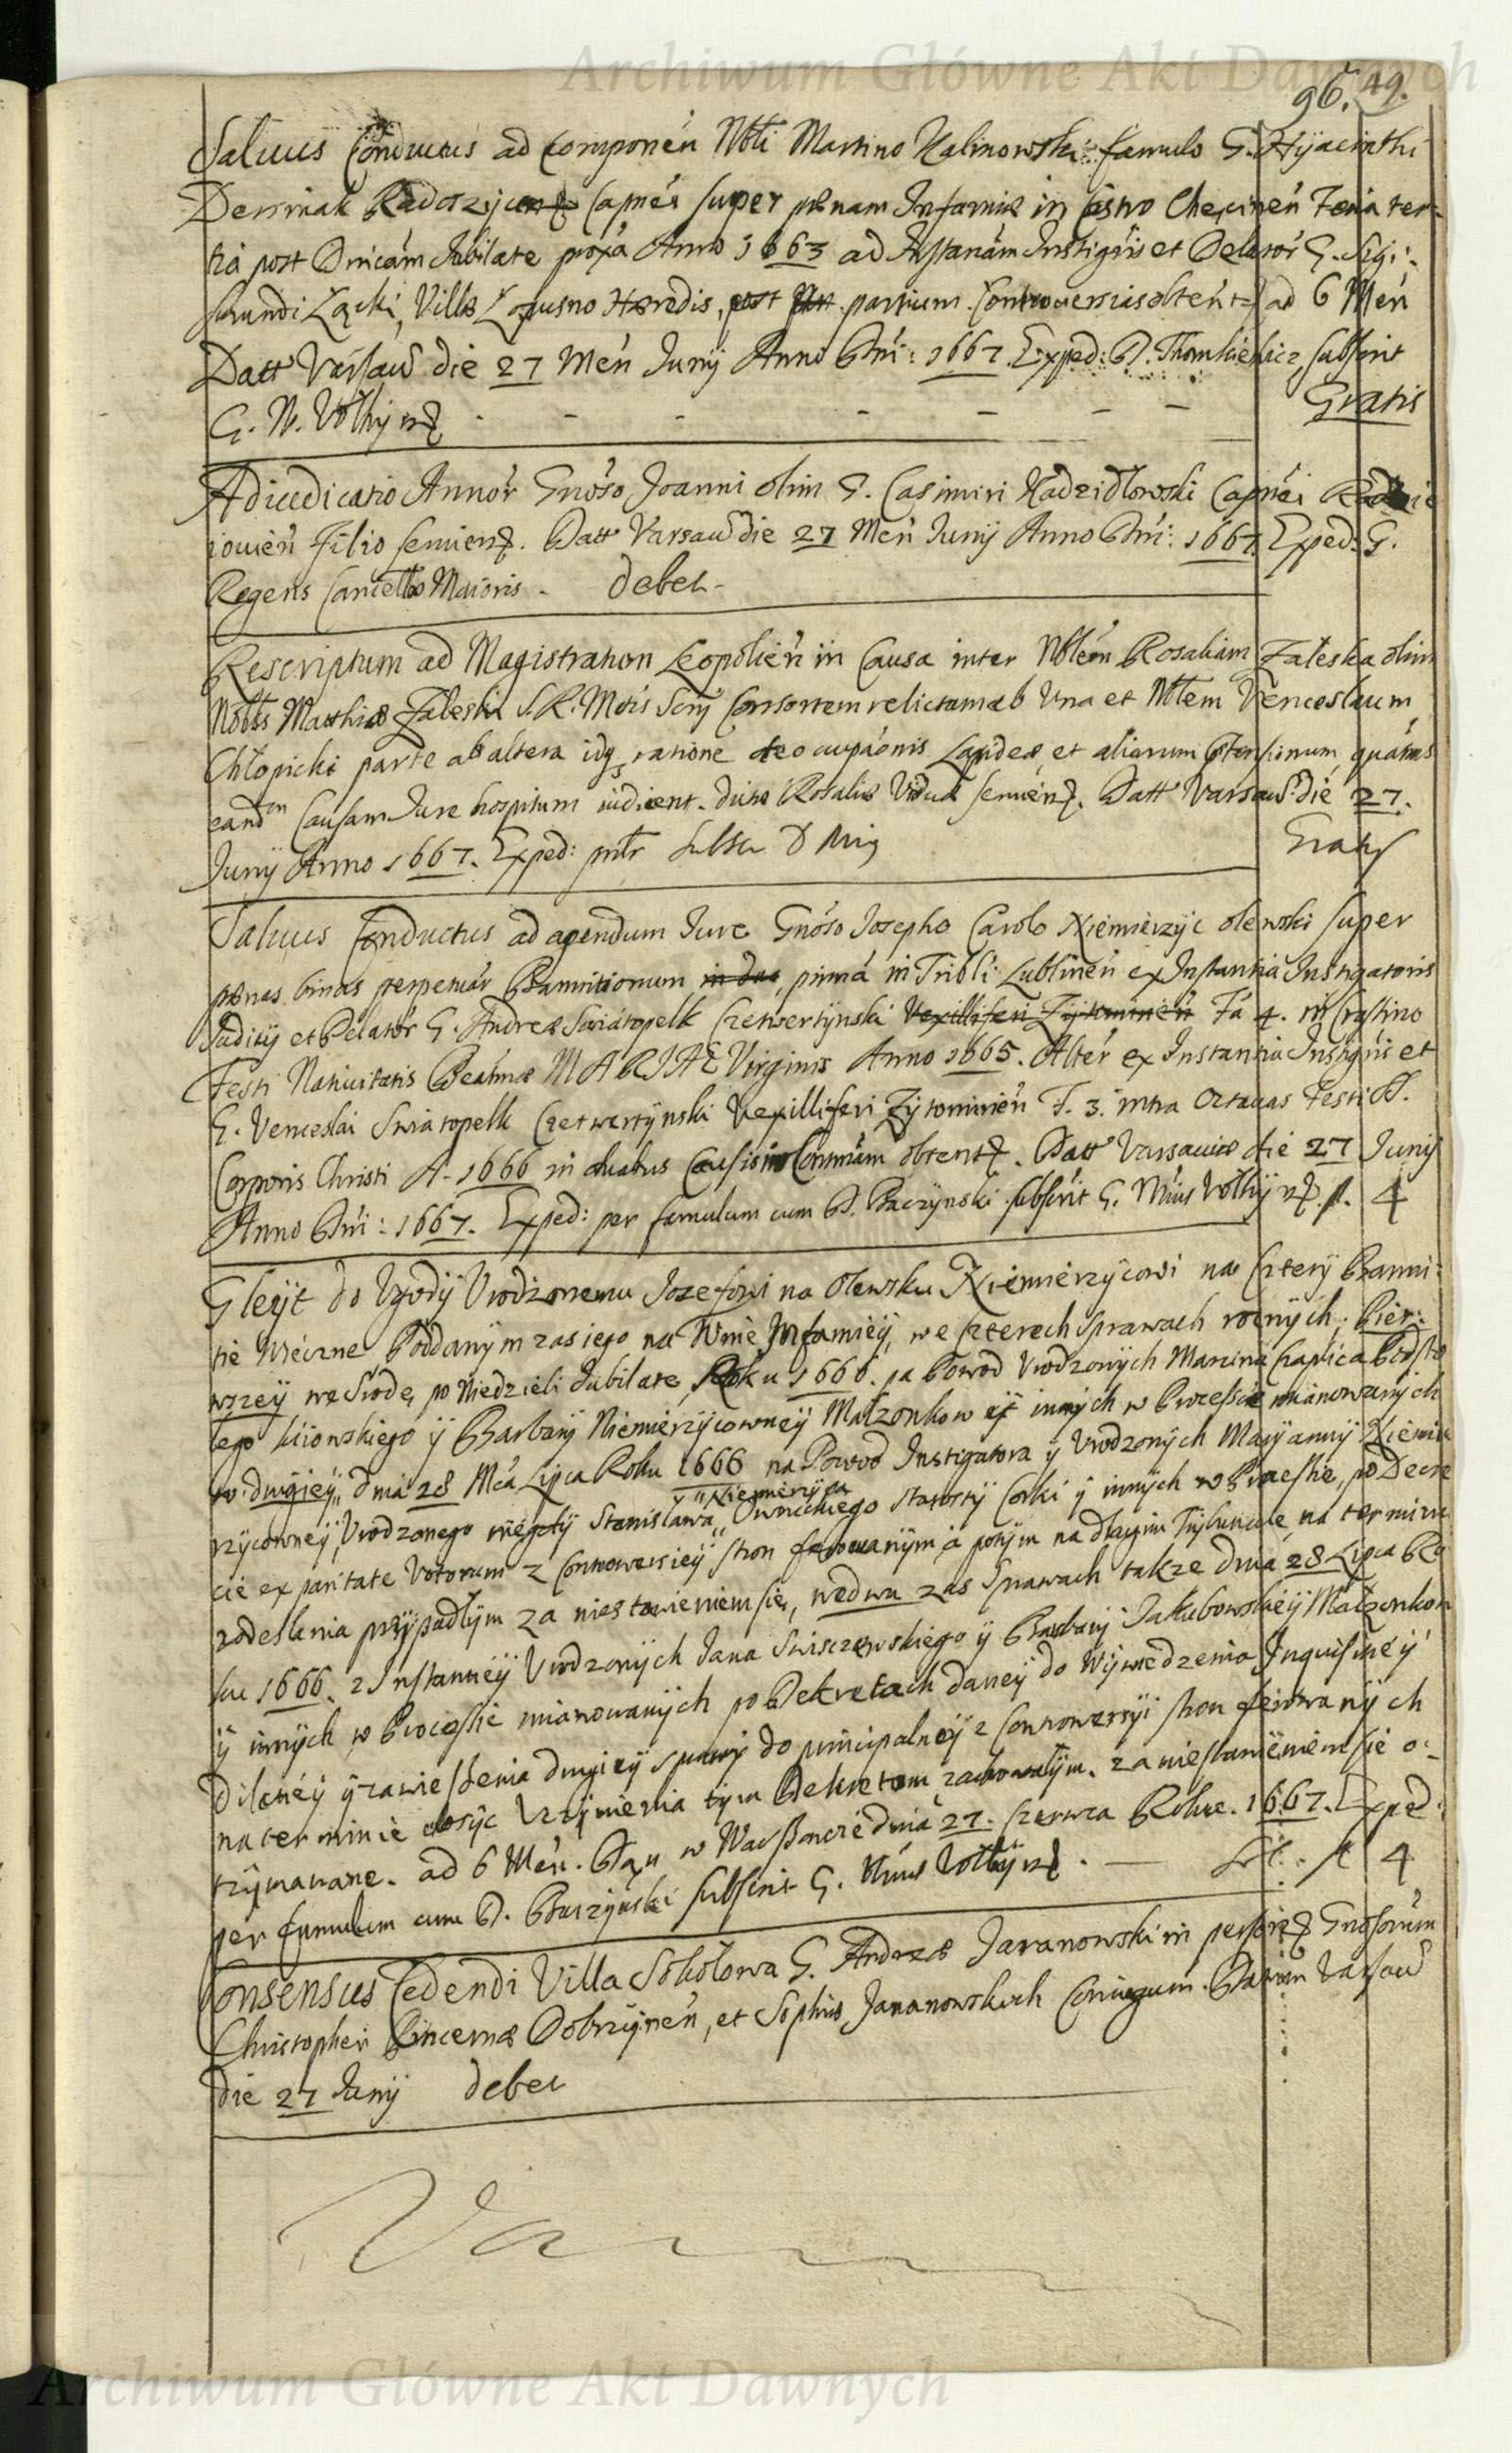 Archiwum Główne Akt Dawnych
96. 49.
Saluus Conductus ad componen Nbli Martino Kalinowski famulo G. Hyacinthi
Dersniak Radoszycen Capnei super poenam Infamiae in Castro Checinen Feria ter-
tia post Dnicam Jubilate proxa Anno 1663 ad Instanam Instigris et Delator G. Sigi-
smundi Łącki, Villae Łopusno Haeredis, post partium Controuersias obtent ad 6 Men
Datt Varsau die 27 Men Junij Anno Dni: 1667. Exped: D. Thomkiewicz, subscrit
G. N. Vołhyn - - - - - - - Gratis
Adiudicatio Annor Gnoso Joanni olim G. Casimiri Kadzidłowski Capnei
iouien Filio seruien. Datt Varsau die 27 Men Junij Anno Dni: 1667 Exped: G.
Regens Cancellae Maioris - debet -
Rescriptum ad Magistratum Leopolien in Causa inter Nblem Rosaliam Zaleska olim
Nblis Matthiae Zaleski S. R. Mtis Scrij Consortem relictam ab Vna et Nblem Venceslaum
Chłopicki parte ab altera idq ratione occupaonis Lapideae et aliarum quatnus
eandm Causam Jure hospitum iudicent. dictae Rosaliae Viduae seruien. Datt Varsau die 27.
Junij Anno 1667. Exped: Gratis
Saluus Conductus ad agendum Jure Gnoso Josepho Carolo Niemierzyc olewski super
poenas binas perpetuar Bannitionum in dua, prima in Tribli Lublinen ex Instantia Instigatoris
Judicij et Delator G. Andreae Swiatopelk Czetwertynski Vexilliferi Zytomirien Fa 4. in Crastino
Festi Natiuitatis Beatmae MARIAE Virginis Anno 1665. Alter ex Instantia Instigris et
G. Venceslai Swiatopelk Czetwertynski Vexilliferi Zytomirien F. 3. intra Octauas Festi S.
Corporis Christi A. 1666 in duabus Causis in Contumam obtent. Datt Varsauiae die 27 Junij
Anno Dni: 1667. Exped: per famulum cum D. Baczynski subscrit G. Nrius Vołhyn fl. 4
Gleyt do Vgody Vrodzonemu Jozefowi na Olewsku Niemierzycowi na Cztery Banni-
tie Wieczne Poddanym zas iego na Winie Infamiey, we Czterech Sprawach roznych; Pier-
wszey we Srodę po Niedzieli Jubilate Roku 1666. na Powod Vrodzonych Marcina Czaplica Podsto
lego Kiiowskiego y Barbary Niemierzycowney Małzonkow y innych w Processie mianowanych
w drugiey, dnia 28 Mca Lipca Roku 1666 na Powod Instigatora y Vrodzonych Maryanny Niemie
rzycowney, Vrodzonego niegdy Stanisława „Niemierzyca Owruckiego Starosty Corki y innych w Processie, po Decre
cie ex paritate Votorum z Controwersiey stron ferowanym, a potym na drugim Trybunale, na terminie
z odesłania przypadłym za niestawieniem sie, we dwu zas Sprawach takze dnia 28 Lipca Ro
ku 1666. z Instantiey Vrodzonych Jana Swisczewskiego y Barbary Jakubowskiey Małzonkow
y innych w Processie mianowanych po Dekretach daney do Wywiedzenia Inquisitiey
Dilatiey y zawieszenia drugiey sprawy do principalney z Controwersyi stron ferowanych
na terminie dosyc Vczynienia tym Dekretom zachowałym. za niestawieniem sie o-
trzymanane. ad 6 Men. Dan w Warszawie dnia 27. Czerwca Roku. 1667. Exped:
per famulum cum D. Baczynski subscrit G. Nrius Vołhyn. — fl 4
Consensus Cedendi Villa Sokołowa G. Andreae Jaranowski in person Gnosorum
Christopheri Pincernae Dobrzynen, et Sophiae Jaranowskich Coniugum. Datum Varsau
die 27 Junij debet
Archiwum Główne Akt Dawnych